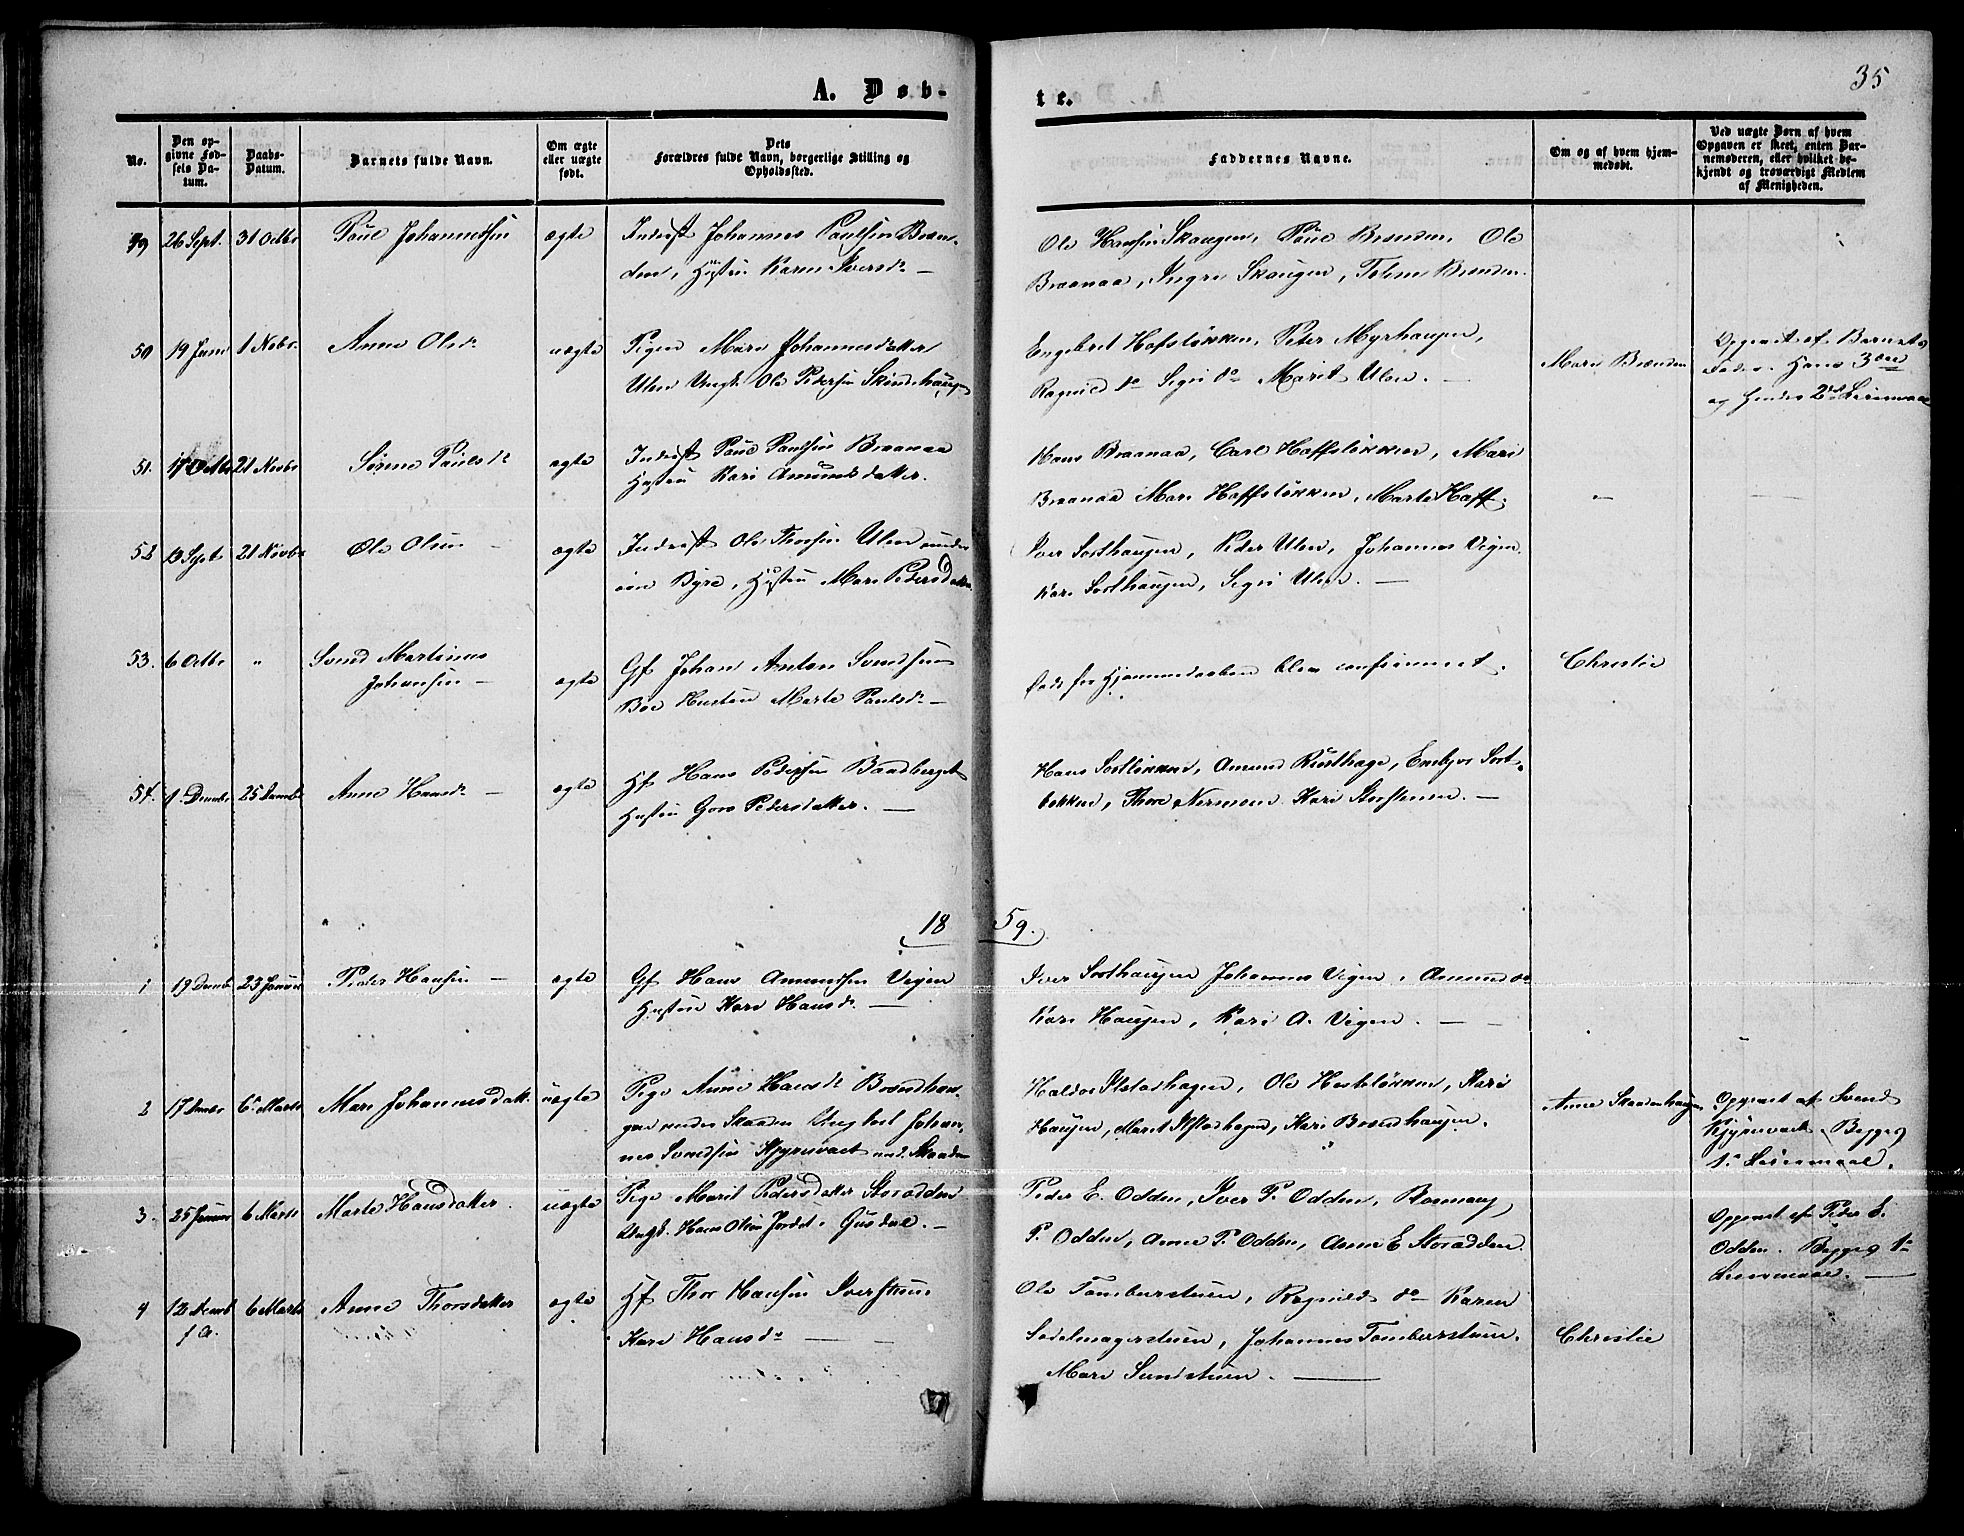 35
A. Døb-
te.
No.
Den op-
givne Fød-
sels Da-
tum.
Daabs-
Datum.
Barnets fulde Navn.
Om ægte
eller uægte
født.
Dets
Forældres fulde Navn, borgerlige Stilling og
Opholdssted.
Faddernes Navne.
Om og af hvem hjem-
medøbt.
Ved uægte Børn af hvem
Opgaven er skeet, enten Bar-
nemoderen, eller hvilket be-
kjendt og troværdigt Medlem
af Menigheden.
49 26 Sept. 31 Octbr Poul Johannessen ægte Inderst Johannes Paulsen Bræn-
den, Hustru Karen Iversdr —
Ole Hansen Skaugen, Poul Brænden, Ole
Braanaa, Ingri Skaugen, Brænden.
50 19 Juni 1 Nobr. Anne Olsdr uægte Pigen Mari Johannesdatter
Ulen Ungk. Ole Pedersen Skindehaugen
Engebret Hofsløkken, Peter Myrhaugen,
Ragnild do Sigri do Marit Ulen. —
Mari Brænden
Opgivet af Barnets
Fader. Hans 3die
og Hendes 2det Leiermaal
51. 17 Octbr 21 Novbr Sørine Poulsdr ægte Inderst Poul Paulsen Braanaa
Hustru Kari Amundsdatter.
Hans Braanaa, Carl Hoffsløkken, Mari
Braanaa Mari Hoffsløkken, Marte Hoff.
52 Sept 21 Novbr Ole Olsen — ægte Inderst Ole Thorsen Ulen under
Byre, Hustru Mari Pedersdatter
Iver Sorthaugen, Peder Ulen, Johannes Vigen.
Kari Sorthaugen, Sigri Ulen. —
53. 6 Octbr " Svend Martinus
Johansen — ægte Gf Johan Anton Svendsen
Boe Hustru Marte Paulsdr —
Hjemmedaaben blev confirmeret.
Christie
54. 1 Decmbr 25 Decmbr Anne Hansdr — ægte Hf Hans Pedersen Baadberget
Hustru Goro Pedersdatter. —
Hans Sortløkken, Amund Rusthage, Embjør Sort-
løkken, Thore Nermoen Kari Storstuen. —
18 59.
1 19 Decmb 23 Januar Peder Hansen — ægte Gf Hans Amundsen Vigen
Hustru Kari Hansdr —
Iver Sorthaugen Johannes Vigen, Amund do
Kari Haugen, Kari A. Vigen. —
2 17 6 Marts Mari Johannesdatt. uægte Pige Anne Hansdr Brændhau-
gen under Skaaden Ungkarl Johan-
nes Svendsen Kjyrrusvaet und. Skaaden
Haldor Ilstadhagen, Ole Hesteløkken, Kari
Haugen, Marit Ilstadhagen, Kari Brændhaugen.
Anne Skaadenhaugen
Opgivet af Svend
Begges
1ste Leiermaal.
3. 25 Januar 6 Marts Marte Hansdatter. uægte Pige Marit Pedersdatter Storodden
Ungk. Hans Olsen Jordet i Gusdal. —
Peder E. Odden, Iver P. Odden, Romaug
P. Odden, Anne P. Odden, Anne E. Storodden.
Opgivet af Peder E.
Odden. Begges 1ste
Leiermaal. —
4 12 Decmb
f. A. 6 Marts Anne Thorsdatter ægte Hf Thor Hansen Iverstuen
Kari Hansdr —
Ole Tømberstuen, Ragnild do Karen
Sadelmagerstuen, Johannes Tømberstuen,
Mari Sundstuen. —
Christie